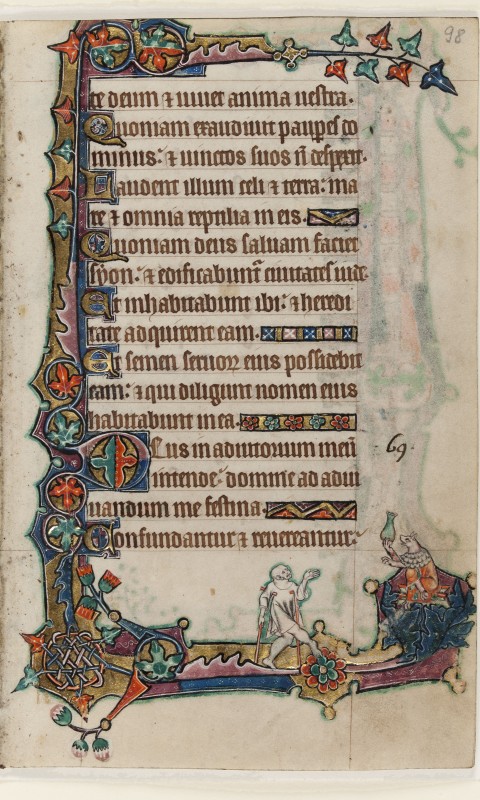 98
te deum & uiuet anima uestra.
Quoniam exaudiuit paupes do
minus: & uinctos suos n̄ despexit.
Laudent illum celi & terra: ma
re & omnia reptilia in eis.
Quoniam deus saluam faciet
syon: & edificabunt̄ ciuitates iude
Et inhabitabunt ibi: & heredi
tate adquirent eam.
Et semen seruoꝝ eius possidebit
eam: & qui diligunt nomen eius
habitabunt in ea.
Deus in adiutorium meū
69.
intende: domine ad adiu
uandum me festina.
Confundantur & reuereantur: